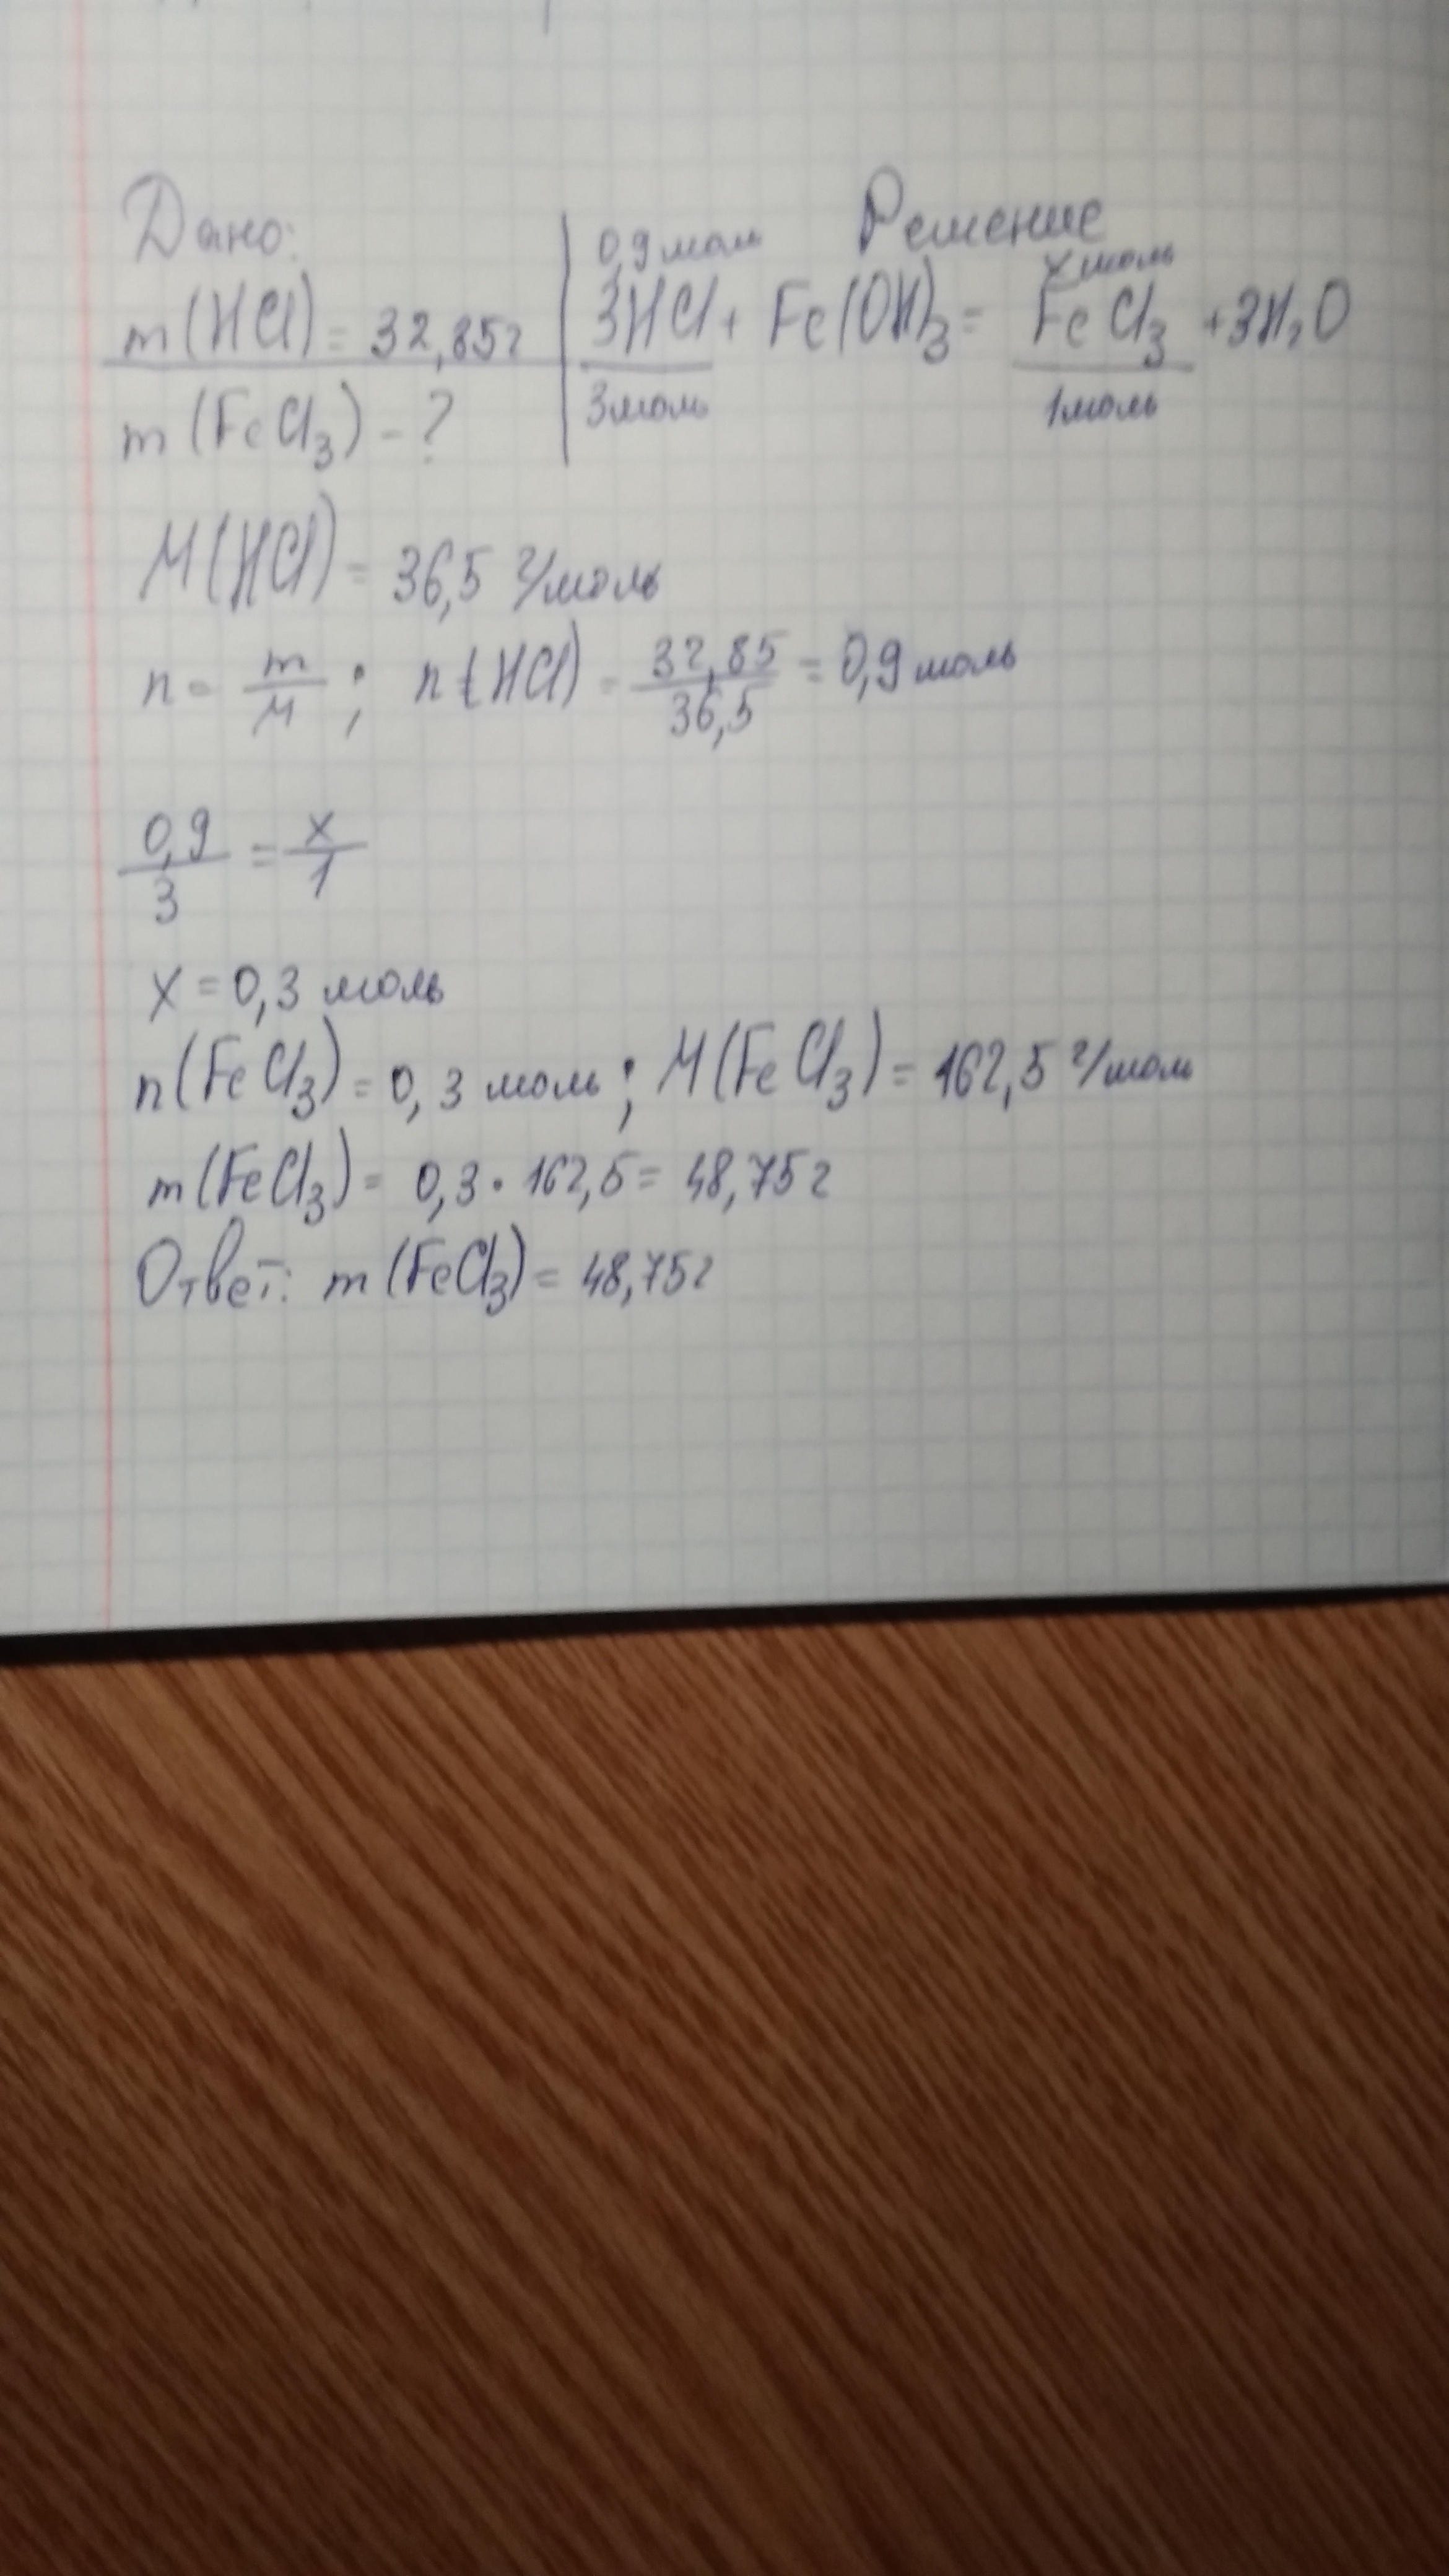 Дано: Решение
0,9 моль x моль
m(HCl) = 32,85г 3HCl + Fe(OH)3 = FeCl3 + 3H2O
3моль 1моль
m(FeCl3) - ?
M(HCl) = 36,5 г/моль
n = m/M ; n(HCl) = 32,85/36,5 = 0,9 моль
0,9/3 = x/1
x = 0,3 моль
n(FeCl3) = 0,3 моль ; M(FeCl3) = 162,5 г/моль
m(FeCl3) = 0,3 · 162,5 = 48,75г
Ответ: m(FeCl3) = 48,75г